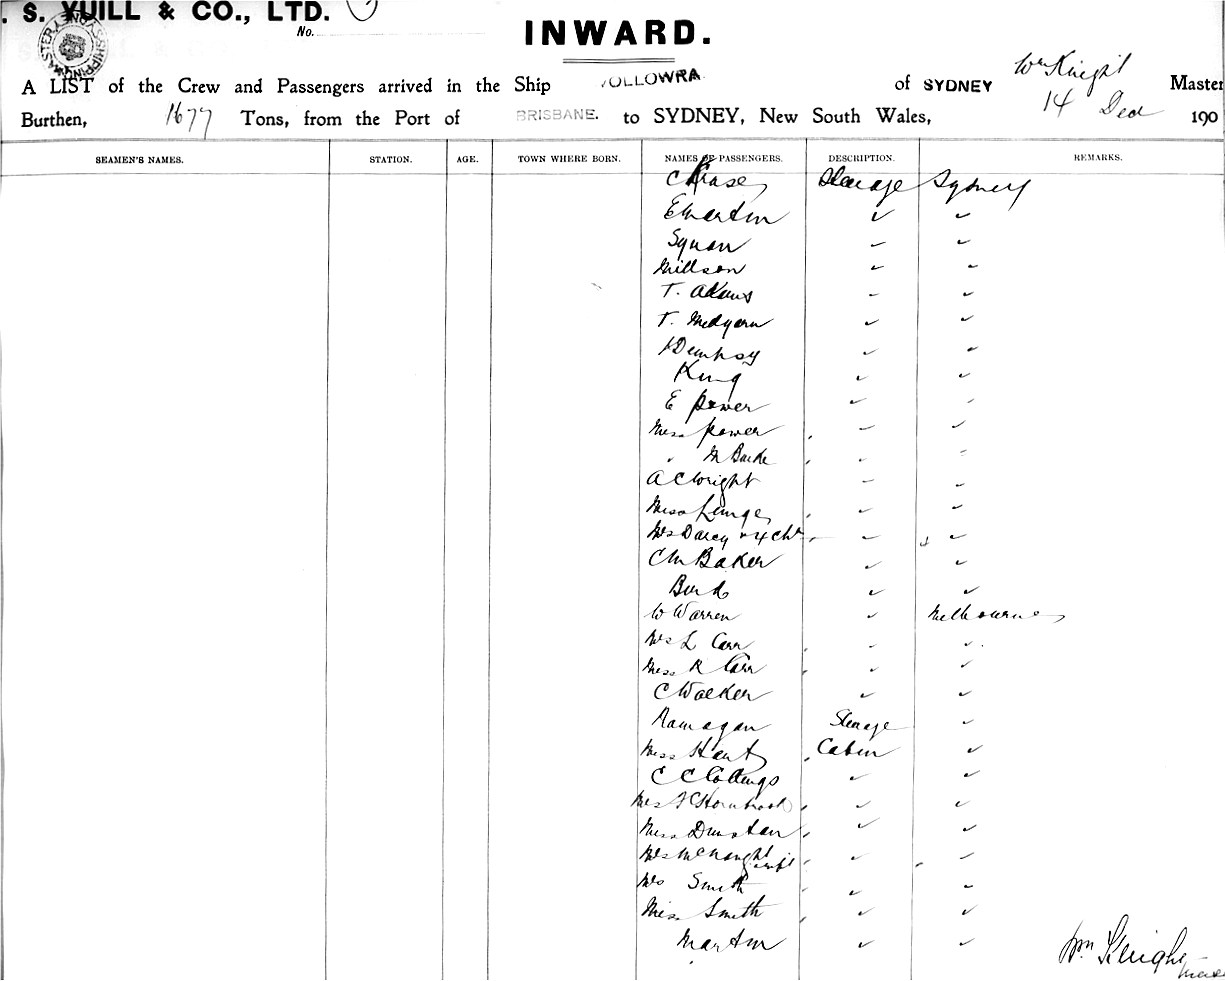 . S. YUILL & CO., LTD.
No.
SHIPPING MASTER SYDNEY
INWARD.
A LIST of the Crew and Passengers arrived in the Ship WOLLOWRA of SYDNEY Wm Knight Master
Burthen, 1677 Tons, from the Port of BRISBANE. to SYDNEY, New South Wales, 14 Dec 190
SEAMEN'S NAMES. STATION. AGE. TOWN WHERE BORN. NAMES OF PASSENGERS. DESCRIPTION. REMARKS.
Steerage Sydney
E Martin
Millson
T. Adams
Dempsey
King
E Power
Miss Power
" M Burke
A C Wright
Miss
Mrs Darcy & 4 Chn
C M Baker
W Warren Melbourne
Mrs L Carr
Miss R Carr
C Walker
Steerage
Miss Cabin
C C Collings
Mrs Hornbrook
Miss Dunstan
Mrs McNaught
Mrs Smith
Miss Smith
Martin
Wm Knight